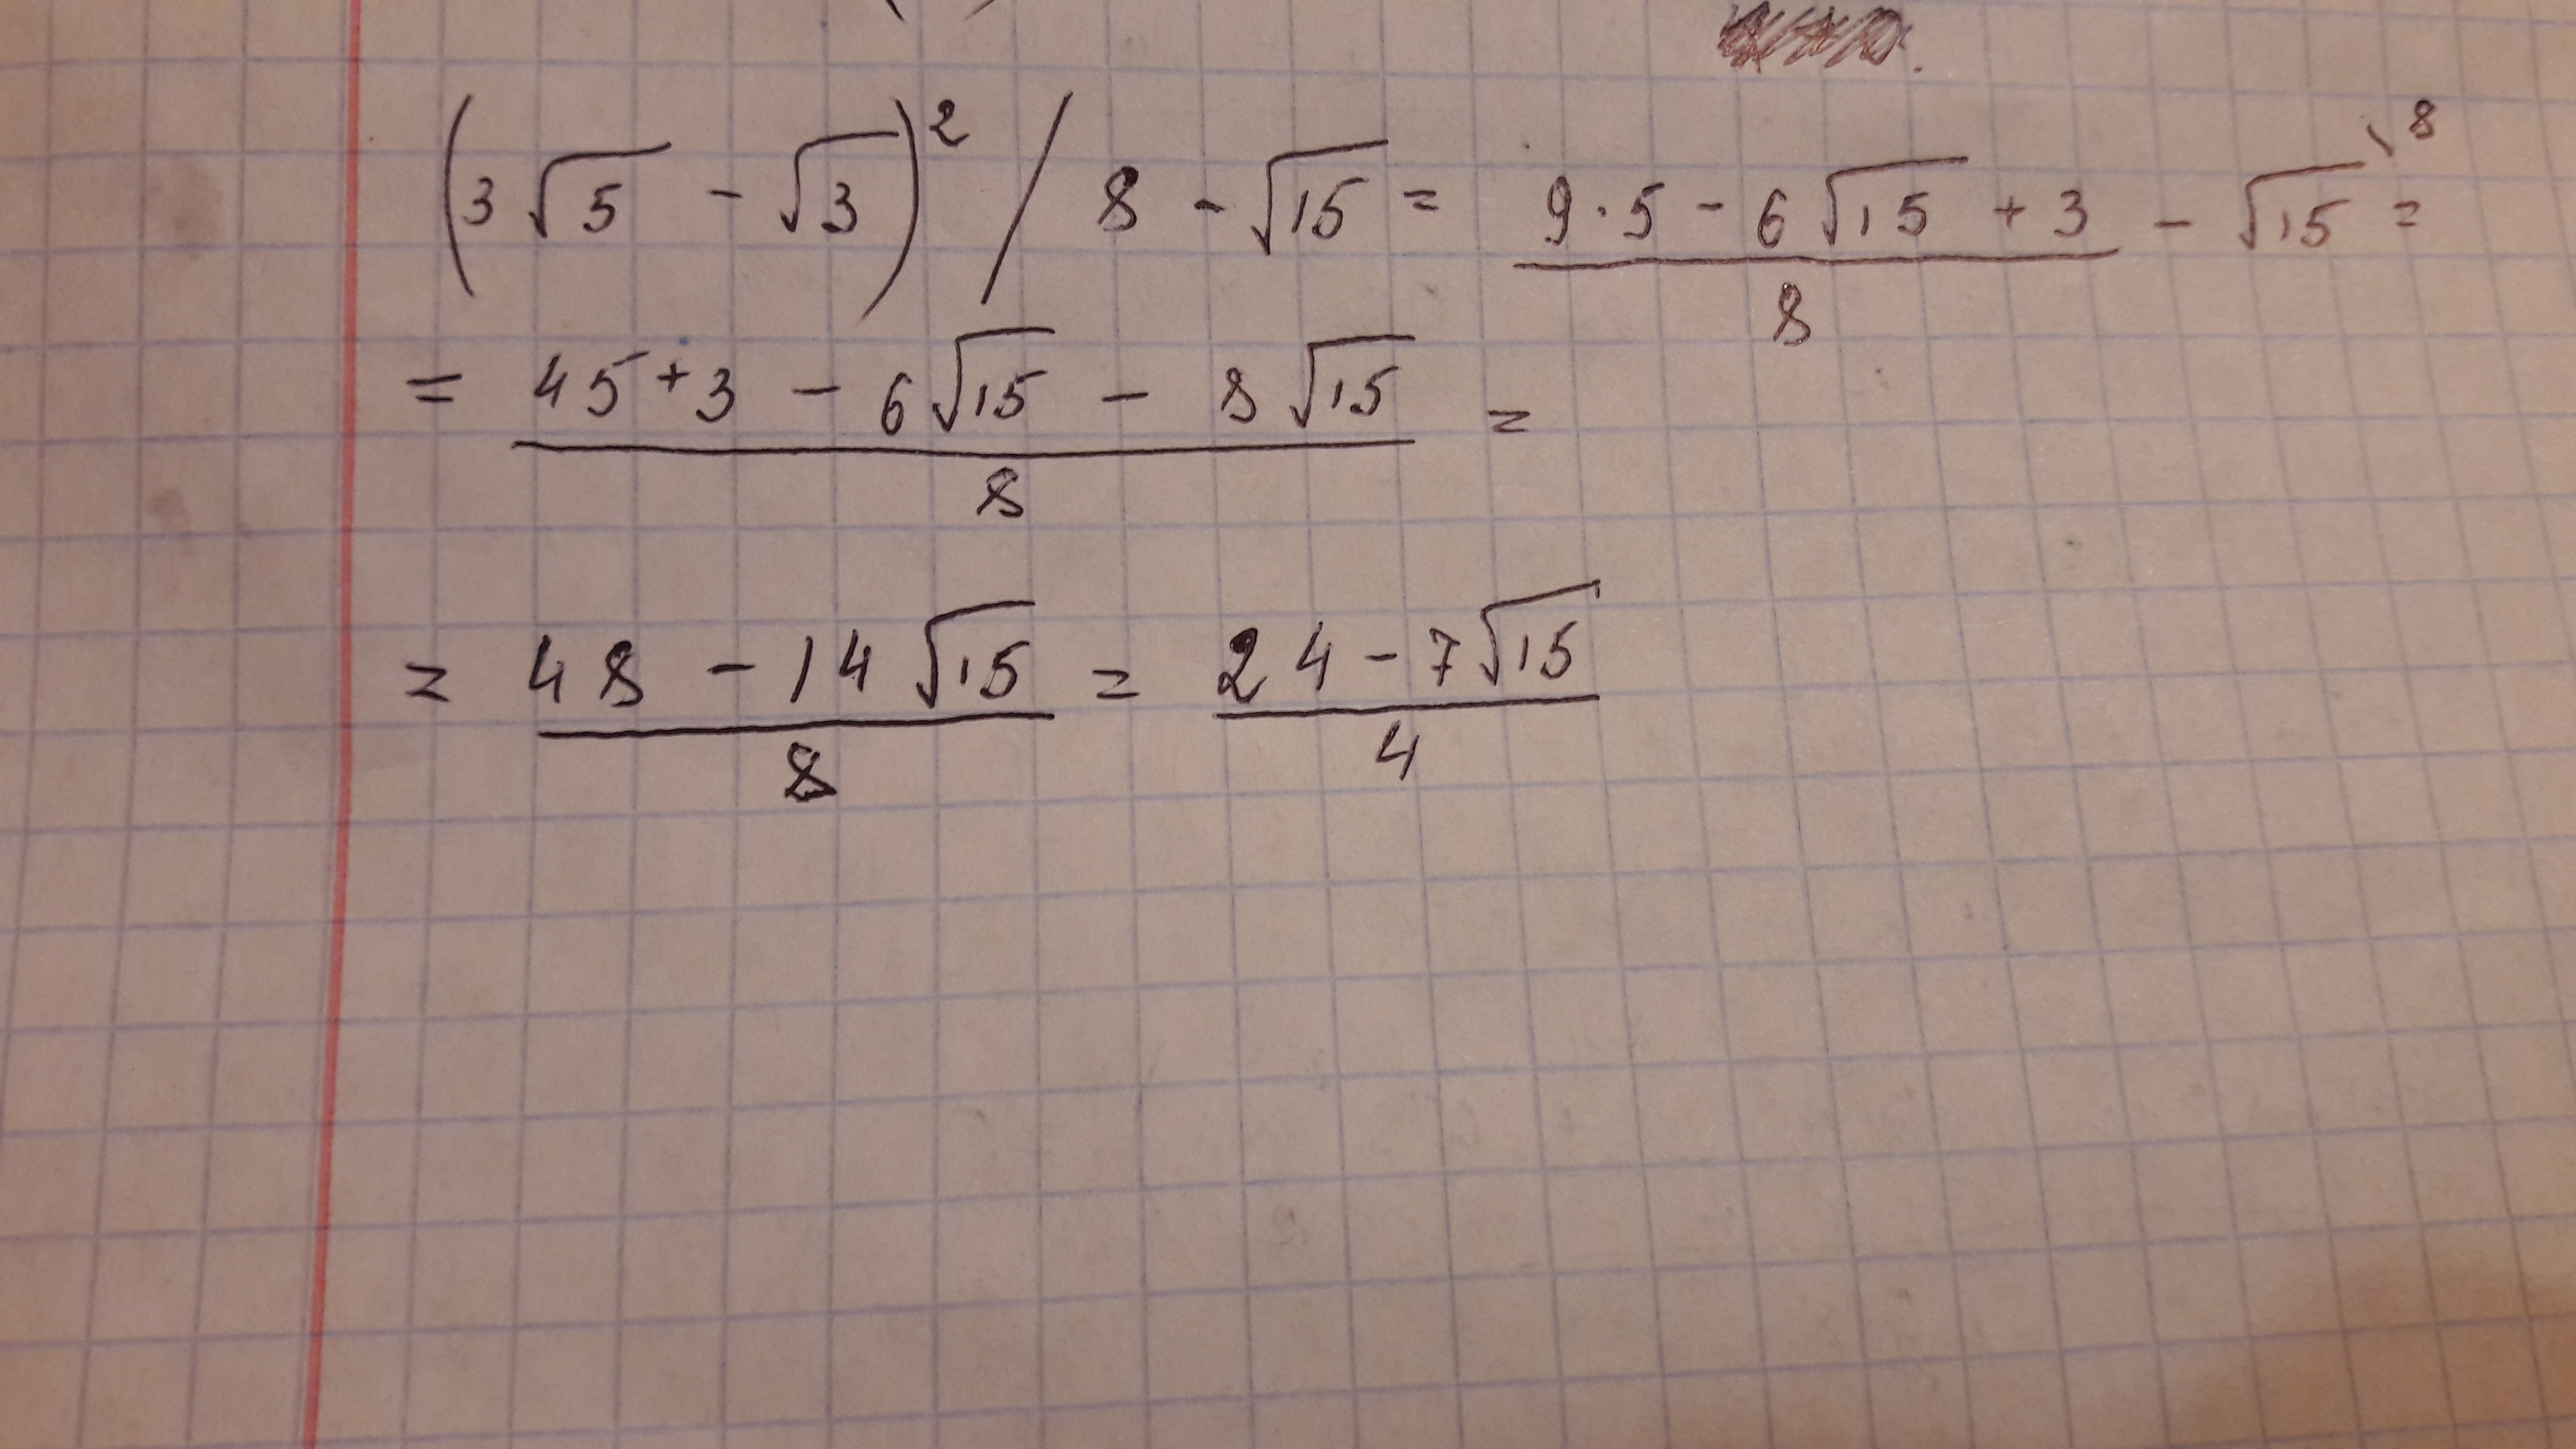 (3√5 - √3)² / 8 - √15 = (9·5 - 6√15 + 3)/8 - √15 \8 =
= (45 + 3 - 6√15 - 8√15)/8 =
= (48 - 14√15)/8 = (24 - 7√15)/4